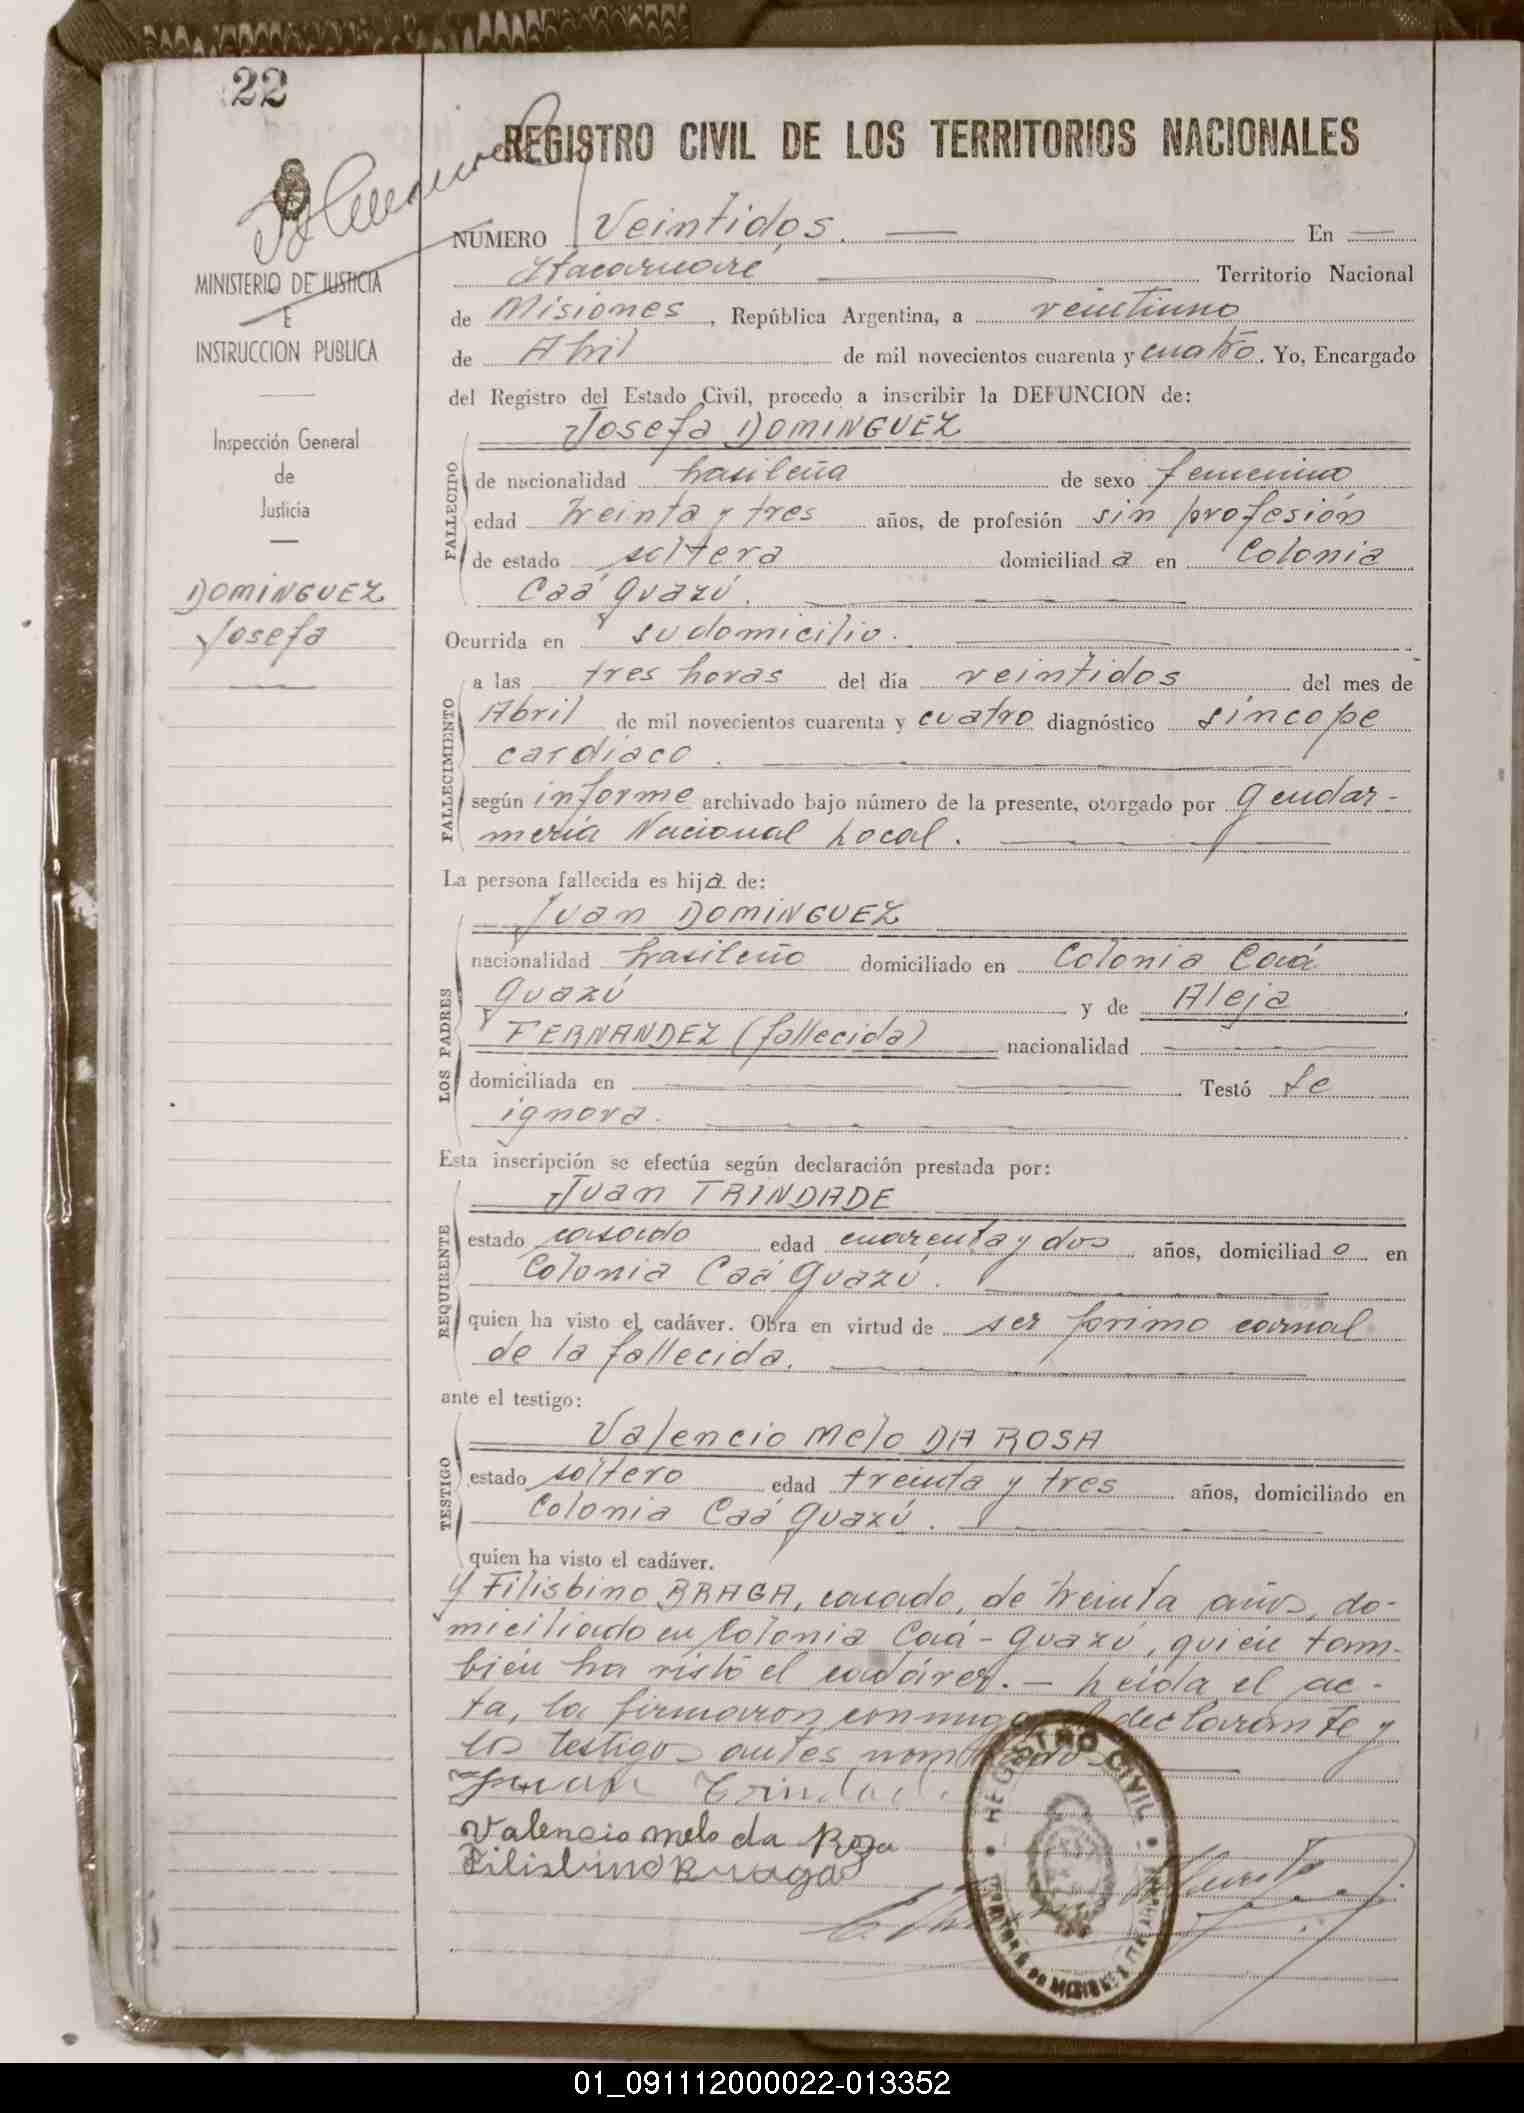 22
REGISTRO CIVIL DE LOS TERRITORIOS NACIONALES
MINISTERIO DE JUSTICIA
E
INSTRUCCION PUBLICA
Inspección General
de
Justicia
DOMINGUEZ
Josefa
NUMERO Veintidos. En
Itacaruaré Territorio Nacional
de Misiones, República Argentina, a veintiuno
de Abril de mil novecientos cuarenta y cuatro. Yo, Encargado
del Registro del Estado Civil, procedo a inscribir la DEFUNCION de:
Josefa DOMINGUEZ
FALLECIDO
de nacionalidad brasileña de sexo femenino
edad treinta y tres años, de profesión sin profesión
de estado soltera domiciliada en Colonia
Caá Guazú.
Ocurrida en su domicilio.
FALLECIMIENTO
a las tres horas del día veintidos del mes de
Abril de mil novecientos cuarenta y cuatro diagnóstico síncope
cardíaco.
según informe archivado bajo número de la presente, otorgado por Gendar-
mería Nacional Local.
La persona fallecida es hija de:
LOS PADRES
Juan DOMINGUEZ
nacionalidad brasileño domiciliado en Colonia Caá
Guazú y de Aleja
FERNANDEZ (fallecida) nacionalidad
domiciliada en Testó Se
ignora.
Esta inscripción se efectúa según declaración prestada por:
REQUIRENTE
Juan TRINDADE
estado casado edad cuarenta y dos años, domiciliado en
Colonia Caá Guazú.
quien ha visto el cadáver. Obra en virtud de ser primo carnal
de la fallecida.
ante el testigo:
TESTIGO
Valencio Melo DA ROSA
estado soltero edad treinta y tres años, domiciliado en
Colonia Caá Guazú.
quien ha visto el cadáver.
y Filisbino BRAGA, casado, de treinta años, do-
miciliado en Colonia Caá-Guazú, quien tam-
bién ha visto el cadáver. — Leída el ac-
ta, la firmaron conmigo el declarante y
los testigos antes nombrados
Juan Trindade
Valencio melo da Roza
Filisbino Braga
REGISTRO CIVIL
01_091112000022-013352